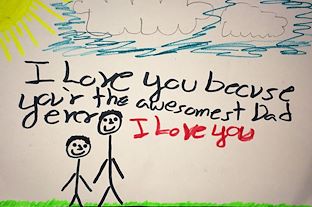 I Love you becuse
you'r the awesomest Dad
yever
I Love you